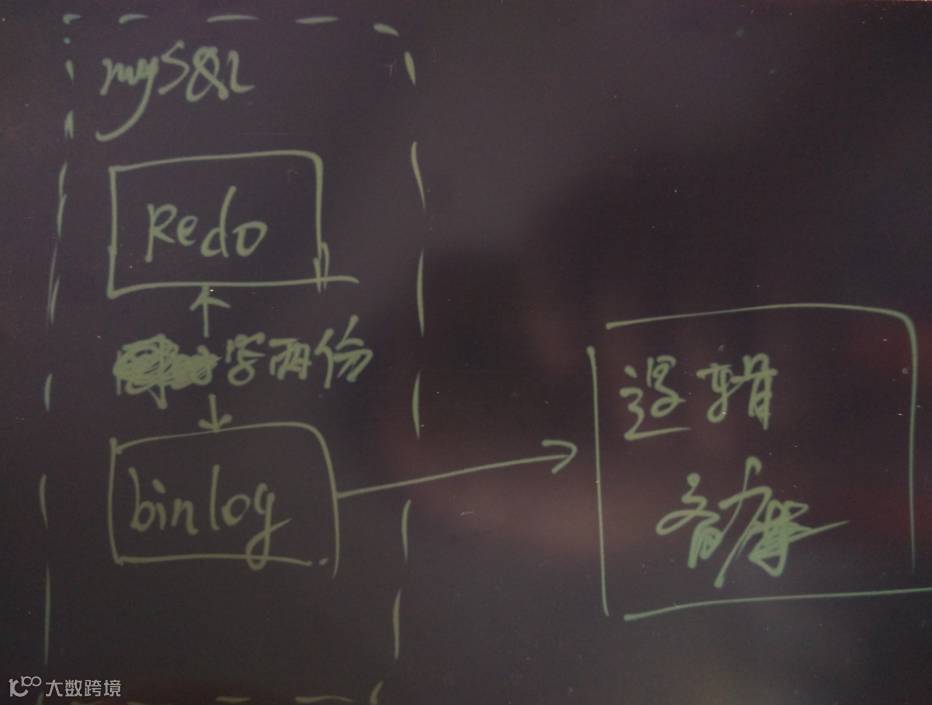 mySQL
Redo
字两份
binlog
逻辑
备库
大数跨境